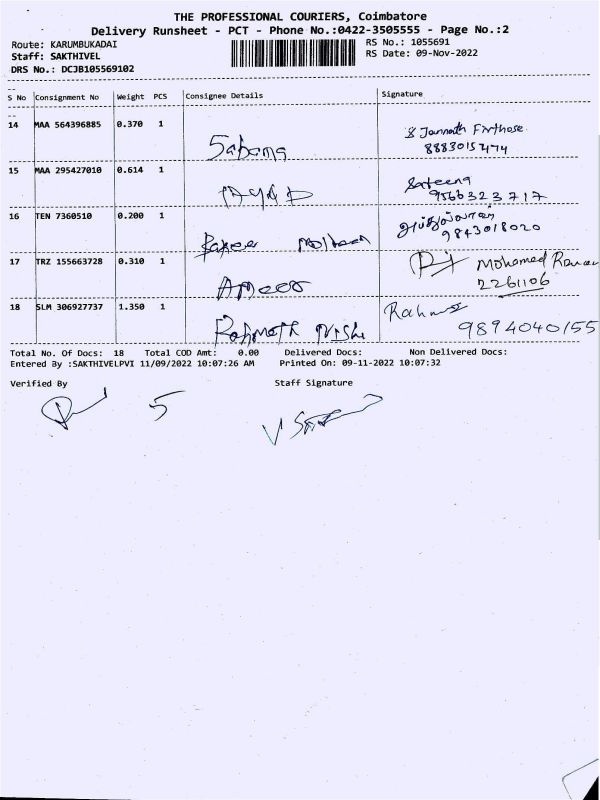 THE PROFESSIONAL COURIERS, Coimbatore
Delivery Runsheet - PCT - Phone No.:0422-3505555 - Page No.:2
Route: KARUMBUKADAI
RS No.: 1055691
Staff: SAKTHIVEL
RS Date: 09-Nov-2022
DRS No.: DCJB105569102
S No Consignment No Weight PCS Consignee Details Signature
14 MAA 564396885 0.370 1 Sabana
8883015474
15 MAA 295427010 0.614 1
9566323717
16 TEN 7360510 0.200 1
9843018020
17 TRZ 155663728 0.310 1 Ameer Mohamed
2261106
18 SLM 306927737 1.350 1 Rahmath Nisha
9894040155
Total No. Of Docs: 18 Total COD Amt: 0.00 Delivered Docs: Non Delivered Docs:
Entered By :SAKTHIVELPVI 11/09/2022 10:07:26 AM Printed On: 09-11-2022 10:07:32
Verified By Staff Signature
5